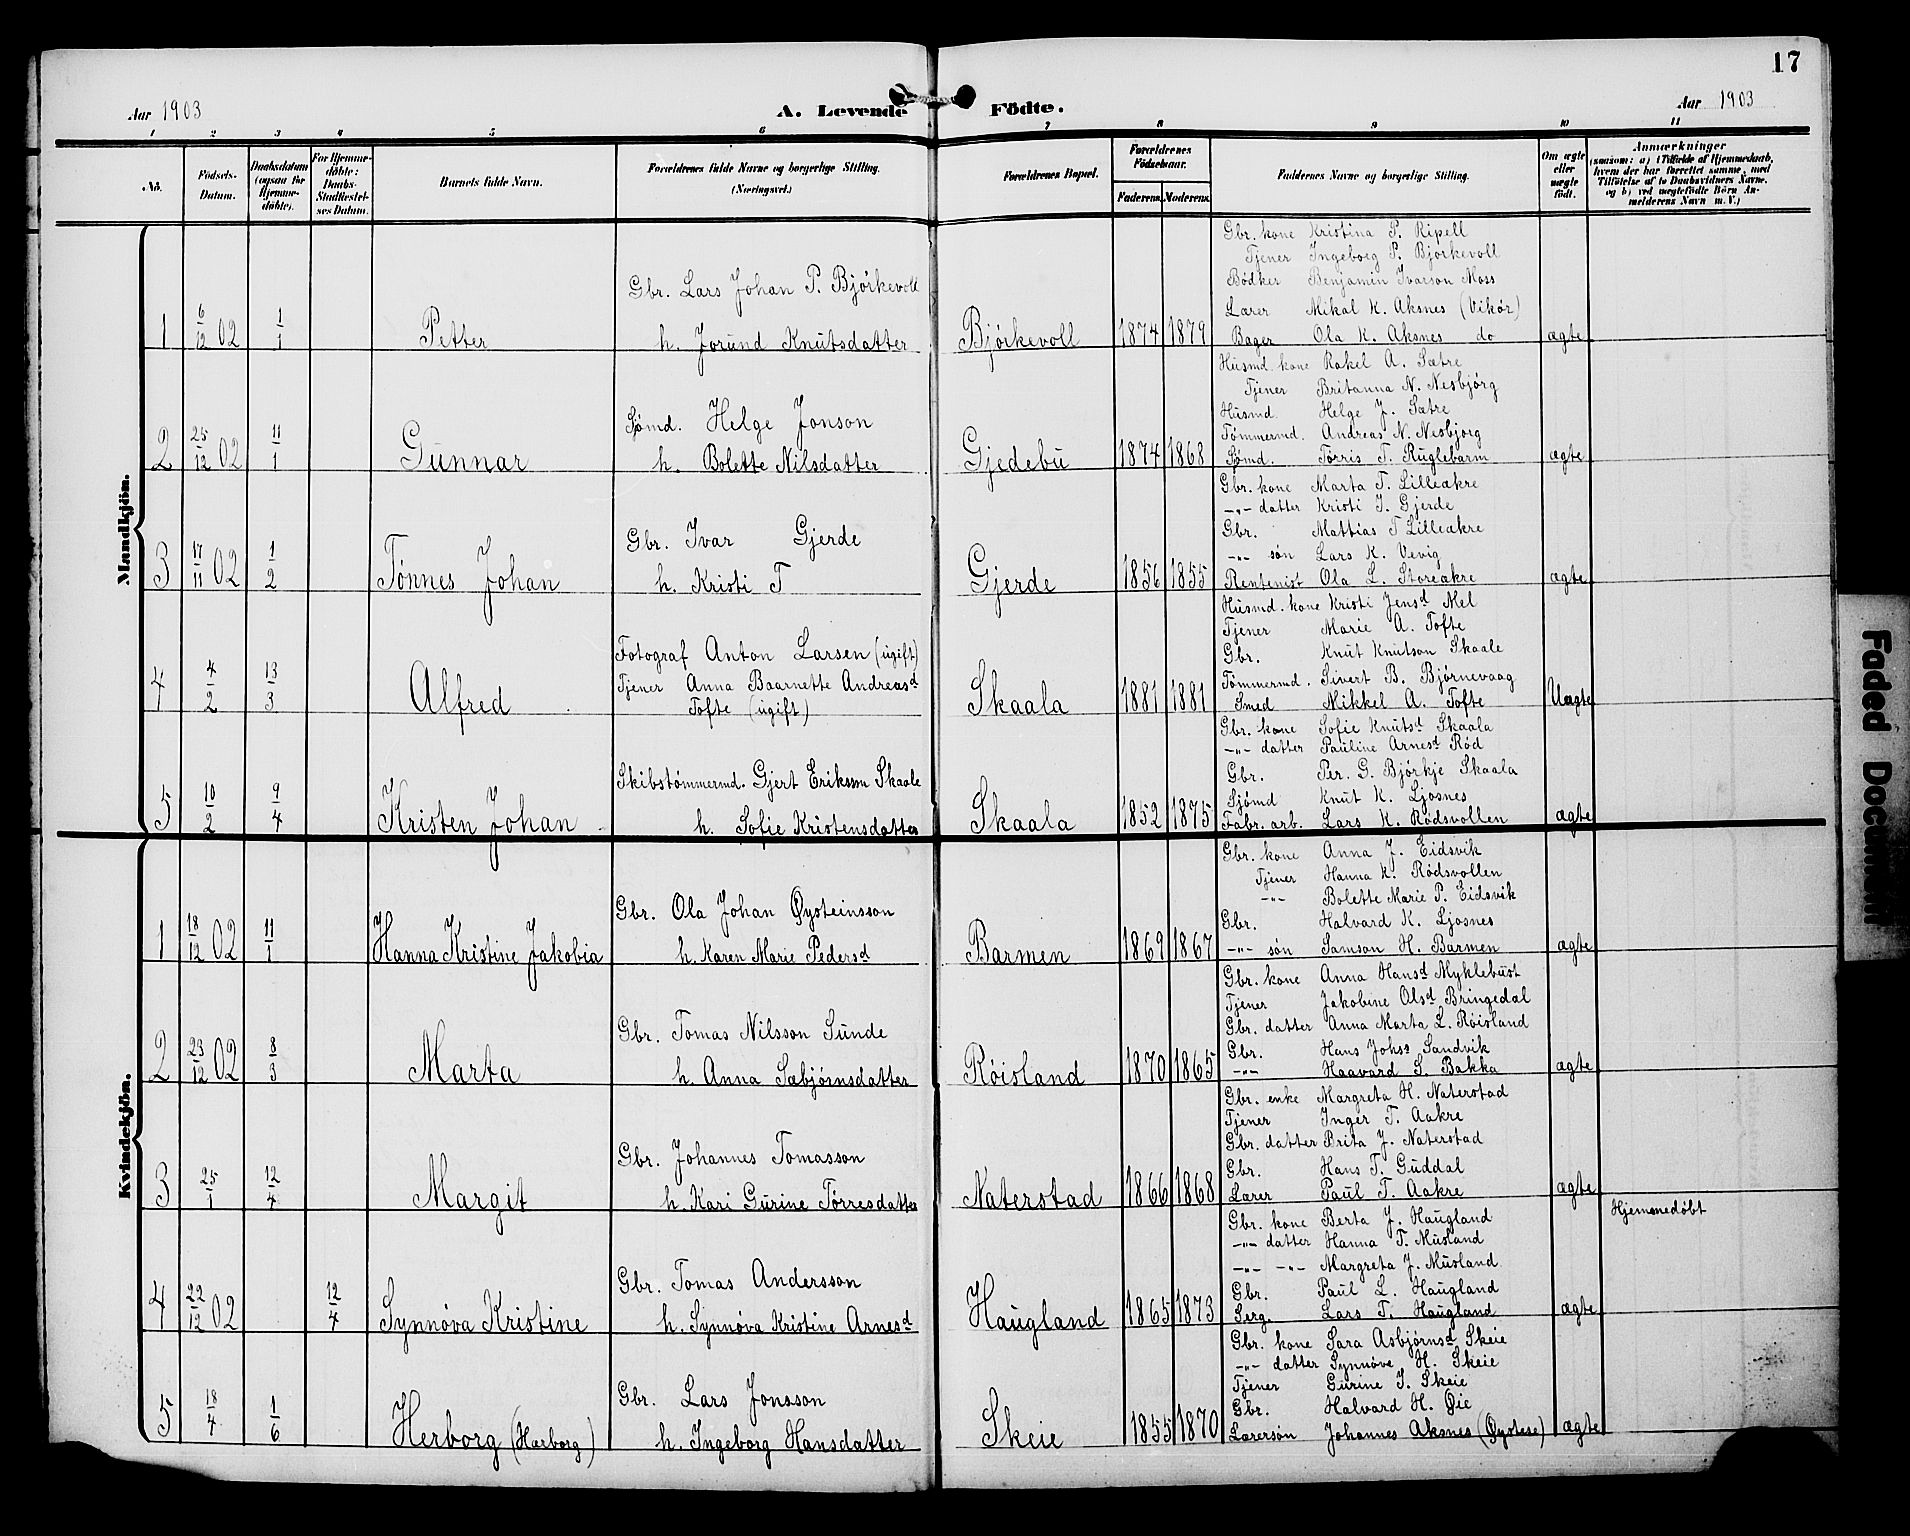 17
Aar 1903 A. Levende Födte. Aar 1903
1 2 3 4 5 6 7 8 9 10 11
No. Födsels-Datum. Daabsdatum (ogsaa for Hjemme-döbte). For Hjemme-döbte: Daabs-Stadfæstel-ses Datum. Barnets fulde Navn. Forældrenes fulde Navne og borgerlige Stilling. (Næringsvei.) Forældrenes Bopæl. Forældrenes Födselsaar. Faderens. Moderens. Faddernes Navne og borgerlige Stilling. Om ægte eller uægte födt. Anmærkninger (saasom: a) i Tilfælde af Hjemmedaab, hvem der har forrettet samme, med Tilföielse af to Daabsvidners Navne, og b) ved uægtefödte Börn Anmelderens Navn m. V.)
Mandkjön.
Gbr. kone Kristina P. Ripell
Tjener Ingeborg P. Bjørkevoll
Bødker Benjamin Ivarson Moss
Gbr. Lars Johan P. Bjørkevoll
Lærer Mikal K. Aksnes (Vikør)
1 6/12 02 1/1 Petter h. Jorund Knutsdatter Bjørkevoll 1874 1879 Bager Ola K. Aksnes do ægte
Husmd. kone Rakel A. Sætre
Tjener Britanna N. Nesbjørg
Sjømd. Helge Jonson
Husmd. Helge J. Sætre
Tømmermd. Andreas N. Nesbjørg
2 25/12 02 11/1 Gunnar h. Bolette Nilsdatter Gjedebu 1874 1868 Sjømd. Torris T. Ruglebarm ægte
Gbr. kone Marta T. Lilleakre
-"- datter Kristi I. Gjerde
Gbr. Ivar Gjerde
Gbr. Mattias T Lilleakre
-"- søn Lars K. Vevig
3 17/11 02 1/2 Tønnes Johan h. Kristi T Gjerde 1856 1855 Rentenist Ola L. Storeakre ægte
Husmd. kone Kristi Jensd Mel
Tjener Marie A. Tofte
Fotograf Anton Larsen (ugift)
Gbr. Knut Knutson Skaale
Tjener Anna Baarnette Andreasd
Tømmermd. Sivert B. Bjørnevaag
4 4/2 13/3 Alfred Tofte (ugift) Skaala 1881 1881 Smed Mikkel A. Tofte Uægte
Gbr. kone Sofie Knutsd Skaala
-"- datter Pauline Arnesd Rød
Skibstømmermd. Gjert Erikssøn Skaale
Gbr. Per. G. Bjørkje Skaala
Sjømd Knut K. Ljosnes
5 10/2 9/4 Kristen Johan h. Sofie Kristensdatter Skaala 1852 1875 Fabr. arb. Lars K. Rødsvollen ægte
Kvindekjön.
Gbr. kone Anna J. Eidsvik
Tjener Hanna K. Rødsvollen
-"- Bolette Marie P. Eidsvik
Gbr. Ola Johan Øysteinsson
Gbr. Halvard K. Ljosnes
1 18/12 02 11/1 Hanna Kristine Jakobia h. Karen Marie Pedersd Barmen 1869 1867 -"- søn Samson H. Barmen ægte
Gbr. kone Anna Hansd Myklebust
Tjener Jakobine Olsd Bringedal
Gbr. datter Anna Marta L. Røisland
Gbr. Tomas Nilsson Sunde
Gbr. Hans Johss Sandvik
2 23/12 02 8/3 Marta h. Anna Sæbjørnsdatter Røisland 1870 1865 -"- Haavard S. Bakka ægte
Gbr. enke Margreta H. Naterstad
Tjener Inger T. Aakre
Gbr. datter Brita J. Naterstad
Gbr. Johannes Tomasson
Gbr. Hans T. Guddal
3 25/1 12/4 Margit h. Kari Gurine Tørresdatter Naterstad 1866 1868 Lærer Paul T. Aakre ægte
Hjemmedøbt
Gbr. kone Berta J. Haugland
-"- datter Hanna T. Musland
-"- -"- Margreta J. Musland
Gbr. Tomas Andersson
Gbr. Paul L. Haugland
4 22/12 02 12/4 Synnøva Kristine h. Synnøva Kristine Arnesd Haugland 1865 1873 Serg. Lars T. Haugland ægte
Gbr. kone Sara Asbjørnsd Skeie
-"- datter Synnøve H. Skeie
Tjener Gurine I. Skeie
Gbr. Lars Jonsson
Gbr. Halvard H. Øie
5 18/4 1/6 Herborg (Harborg) h. Ingeborg Hansdatter Skeie 1855 1870 Lærersøn Johannes Aksnes (Øystese) ægte
Faded Document